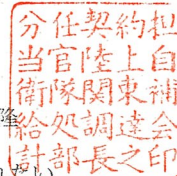 分任契約担
当官陸上自
衛隊関東補
給処調達会
計部長之印
隆